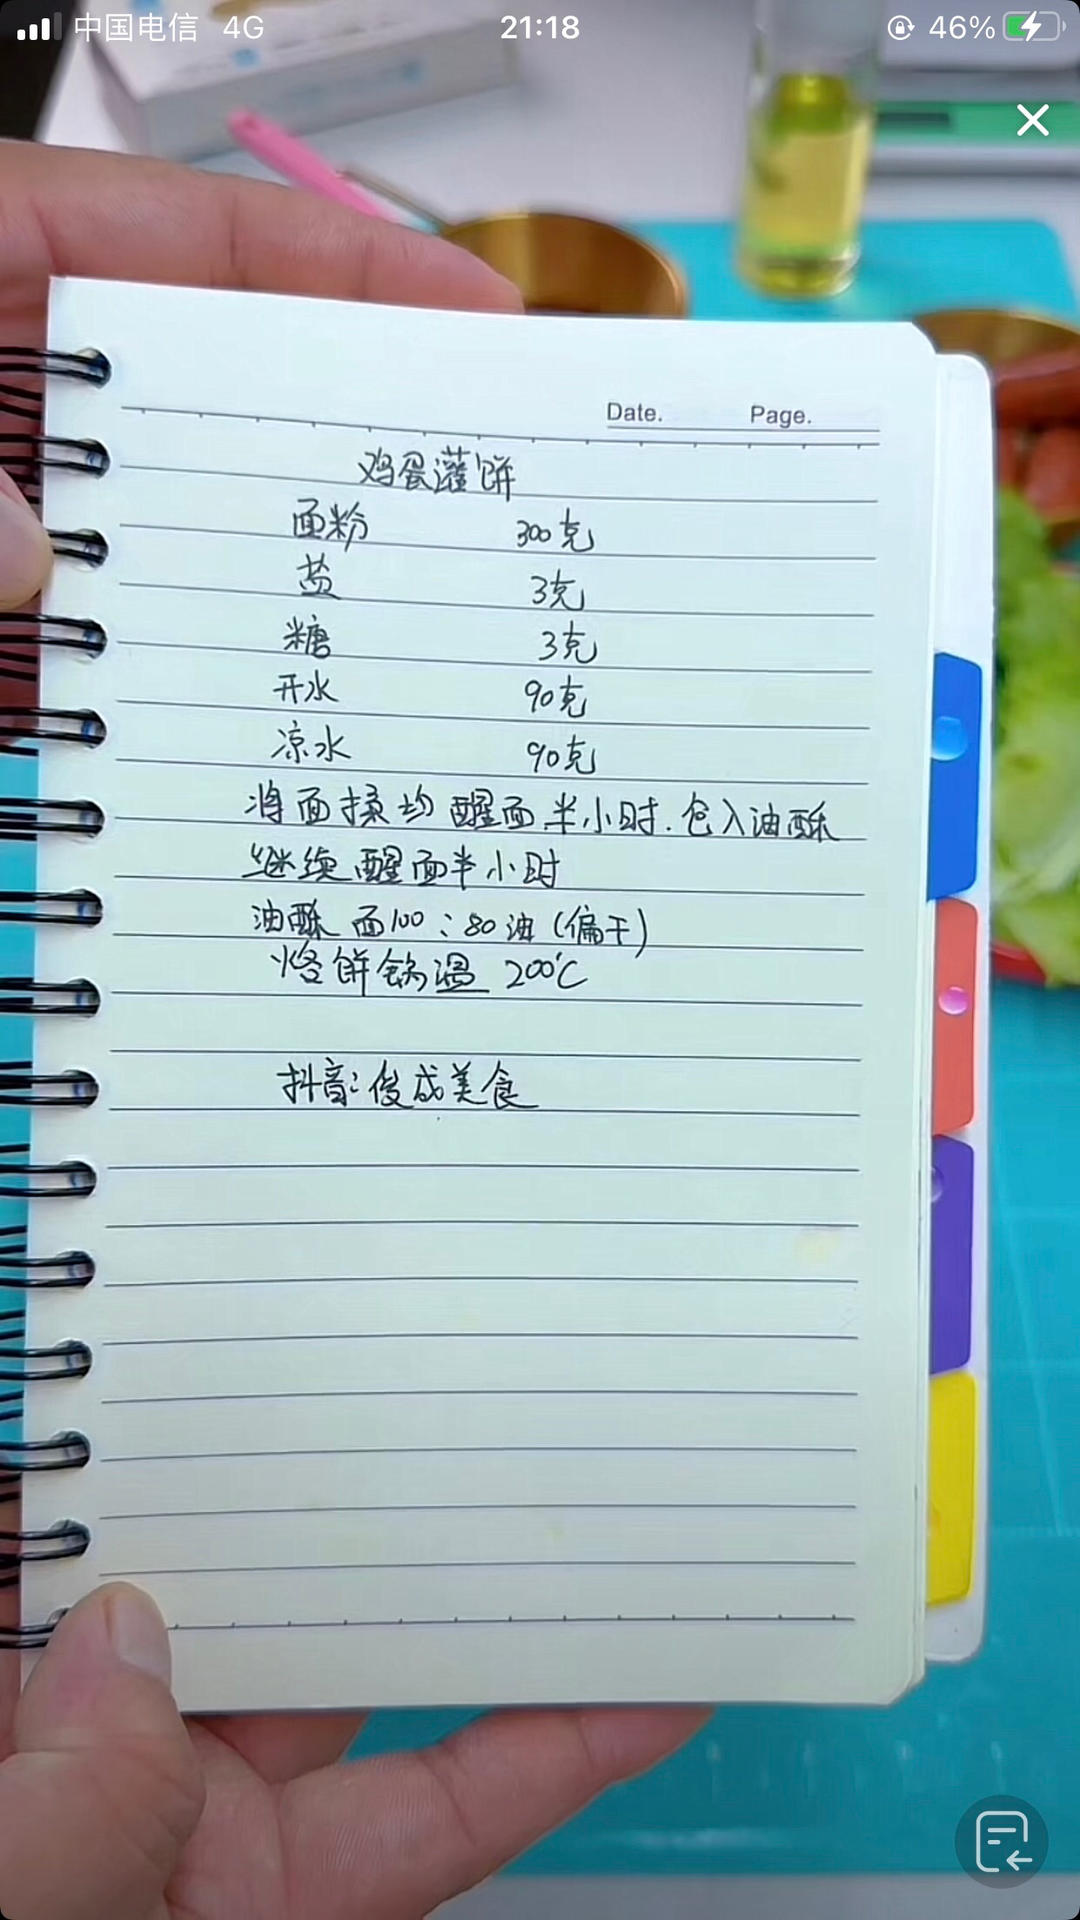 中国电信 4G 21:18 46%
Date. Page.
鸡蛋灌饼
面粉 300克
盐 3克
糖 3克
开水 90克
凉水 90克
将面揉均醒面半小时.包入油酥
继续醒面半小时
油酥 面100:80油(偏干)
烙饼锅温 200℃
抖音:俊成美食